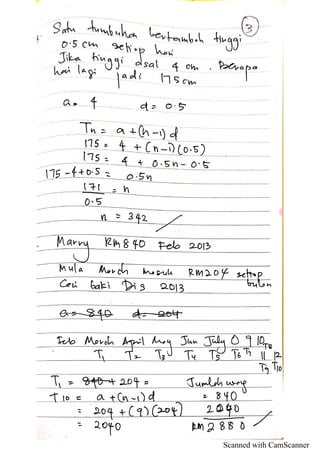 3
Satu tumbuhan bertambah tinggi
0.5 cm setiap hari
Jika tinggi asal 4 cm. Berapa
hari lagi jadi 175 cm
a = 4 d = 0.5
Tn = a + (n-1) d
175 = 4 + (n-1)(0.5)
175 = 4 + 0.5n - 0.5
175 - 4 + 0.5 = 0.5n
171 = n
0.5
n = 342
Marry RM 840 Feb 2013
Mula March masuk RM204 setiap
bulan
Cari baki Dis 2013
a = 840 d = 204
Feb March April May Jun July O 9 10
T1 T2 T3 T4 T5 T6 T7 T8 11 12
T9 T10
T1 = 840 + 204 =
T10 = a + (n-1) d
= 204 + (9)(204)
= 2040
Jumlah wang
= 840
2040
RM 2880
Scanned with CamScanner